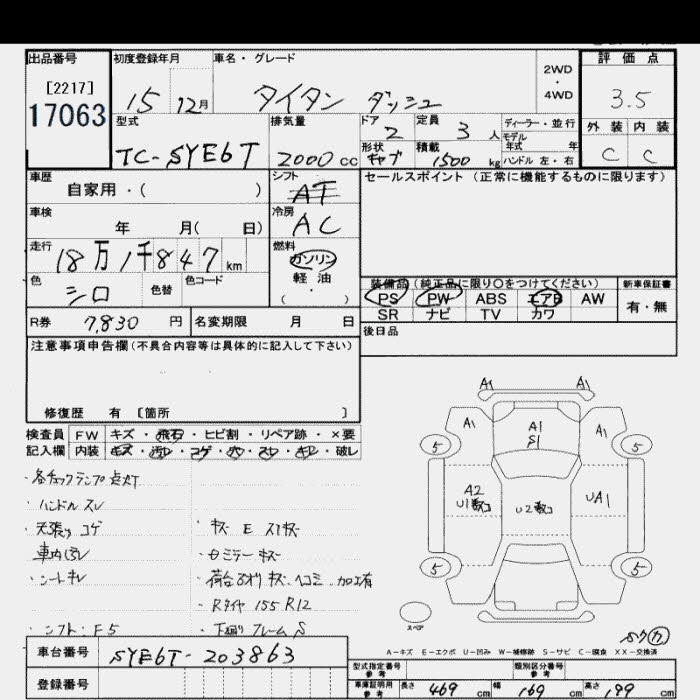 出品番号
[2217]
17063
初度登録年月
15 12月
車名・グレード
タイタン ダッシュ
2WD
・
4WD
評価点
3.5
外装 内装
C C
型式
TC-SYE6T
排気量
2000 cc
ドア
2
定員
3 人
ディーラー・並行
モデル
年式 年
形状
キャブ
積載
1500 kg
ハンドル 左・右
車歴
自家用・( )
シフト
AT
セールスポイント (正常に機能するものに限ります)
車検
年 月( 日)
冷房
AC
走行
18万1千847 km
燃料
ガソリン
軽油
( ・ )
色
シロ
色替
色コード
装備品 (純正品に限り○をつけてください)
PS PW ABS エアB AW
SR ナビ TV カワ
新車保証書
有・無
R券 7,830 円
名変期限 月 日
後日品
注意事項申告欄 (不具合内容等は具体的に記入して下さい)
修復歴 有 [箇所 ]
検査員
記入欄
FW キズ・飛石・ヒビ割・リペア跡・×要
内装 キズ・汚レ・コゲ・穴・スレ・キレ・破レ
・各チェックランプ点灯
・ハンドル スレ
・天張り コゲ
・シートキレ
・シフト:F5
・キズ E スリキズ
・Rタイヤ 155 R12
・下廻り フレーム S
A1 A1
A1 A1 A1
S1
5 5
A2
U1数コ
U2数コ
UA1
5 5
スペア
A-キズ E-エクボ U-凹み W-補修跡 S-サビ C-腐食 XX-交換済
車台番号 SYE6T-203863
登録番号
型式指定番号
参考
類別区分番号
参考
車庫証明用
参考
長さ 469 cm 幅 169 cm 高さ 199 cm